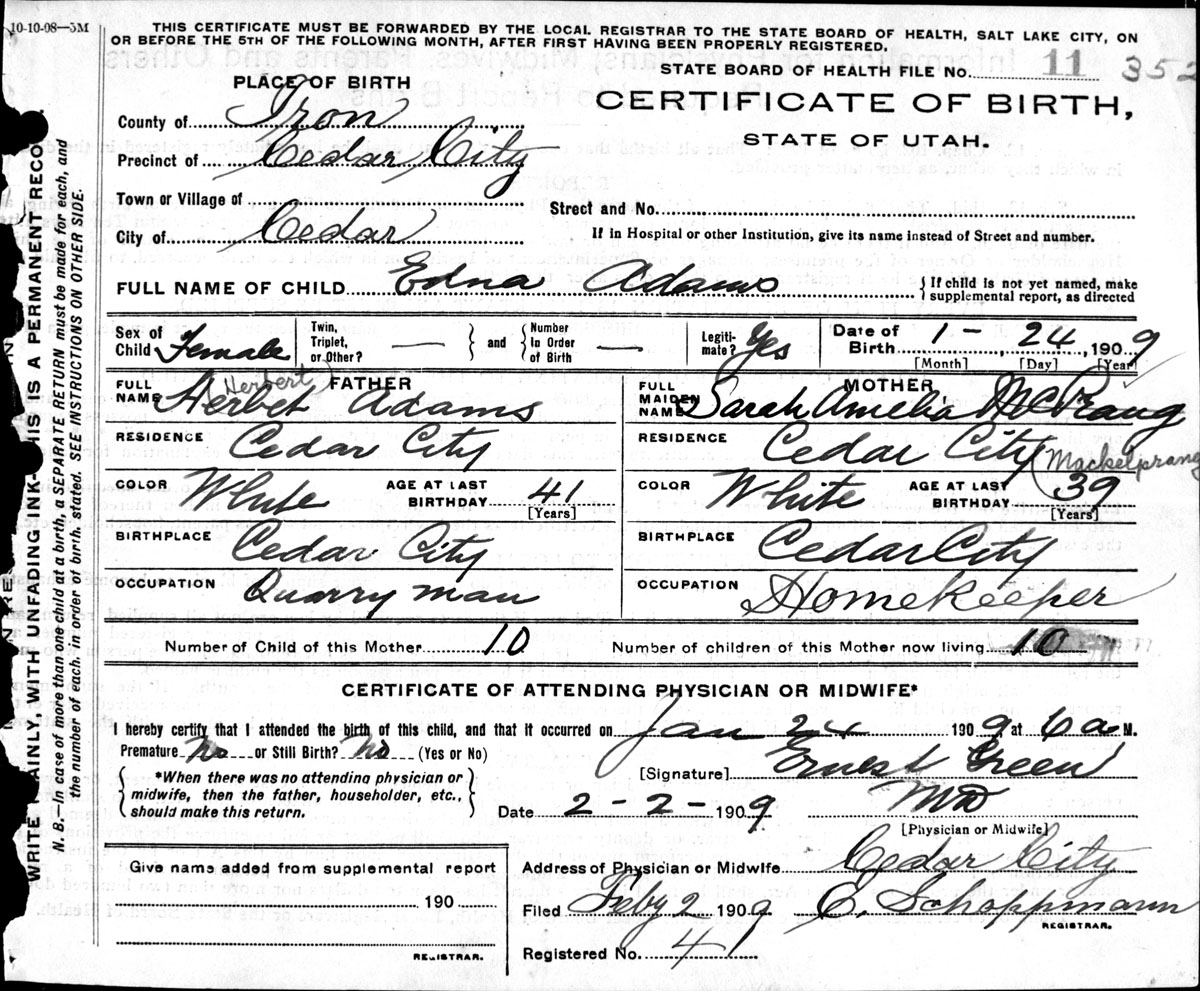 10-10-08—5M
THIS CERTIFICATE MUST BE FORWARDED BY THE LOCAL REGISTRAR TO THE STATE BOARD OF HEALTH, SALT LAKE CITY, ON
OR BEFORE THE 5TH OF THE FOLLOWING MONTH, AFTER FIRST HAVING BEEN PROPERLY REGISTERED.
STATE BOARD OF HEALTH FILE No. 11 352
PLACE OF BIRTH
CERTIFICATE OF BIRTH,
STATE OF UTAH.
County of Iron
Precinct of Cedar City
Town or Village of
Street and No.
City of Cedar
If in Hospital or other Institution, give its name instead of Street and number.
FULL NAME OF CHILD Edna Adams { If child is not yet named, make
supplemental report, as directed
Sex of Child Female
Twin, Triplet, or Other? — } and { Number In Order of Birth —
Legitimate? Yes
Date of Birth 1 - 24, 1909
[Month] [Day] [Year]
FATHER
FULL NAME Herbet Adams
(Herbert)
RESIDENCE Cedar City
COLOR White AGE AT LAST BIRTHDAY 41
[Years]
BIRTHPLACE Cedar City
OCCUPATION Quarry man
MOTHER
FULL MAIDEN NAME Sarah Amelia
RESIDENCE Cedar City
(Mackelprang
COLOR White AGE AT LAST BIRTHDAY 39
[Years]
BIRTHPLACE Cedar City
OCCUPATION Homekeeper
Number of Child of this Mother 10 Number of children of this Mother now living 10
CERTIFICATE OF ATTENDING PHYSICIAN OR MIDWIFE*
I hereby certify that I attended the birth of this child, and that it occurred on Jan 24 1909 at 6 a M.
Premature no or Still Birth? no (Yes or No)
{ *When there was no attending physician or
midwife, then the father, householder, etc.,
should make this return. }
[Signature] Ernest Green
Date 2-2- 1909 MD
[Physician or Midwife]
Give name added from supplemental report
190
REGISTRAR.
Address of Physician or Midwife Cedar City
Filed Feby 2 1909 E. Schoppmann
REGISTRAR.
Registered No. 41
WRITE PLAINLY, WITH UNFADING INK—THIS IS A PERMANENT RECO
N. B.—In case of more than one child at a birth, a SEPARATE RETURN must be made for each, and
the number of each, in order of birth, stated. SEE INSTRUCTIONS ON OTHER SIDE.